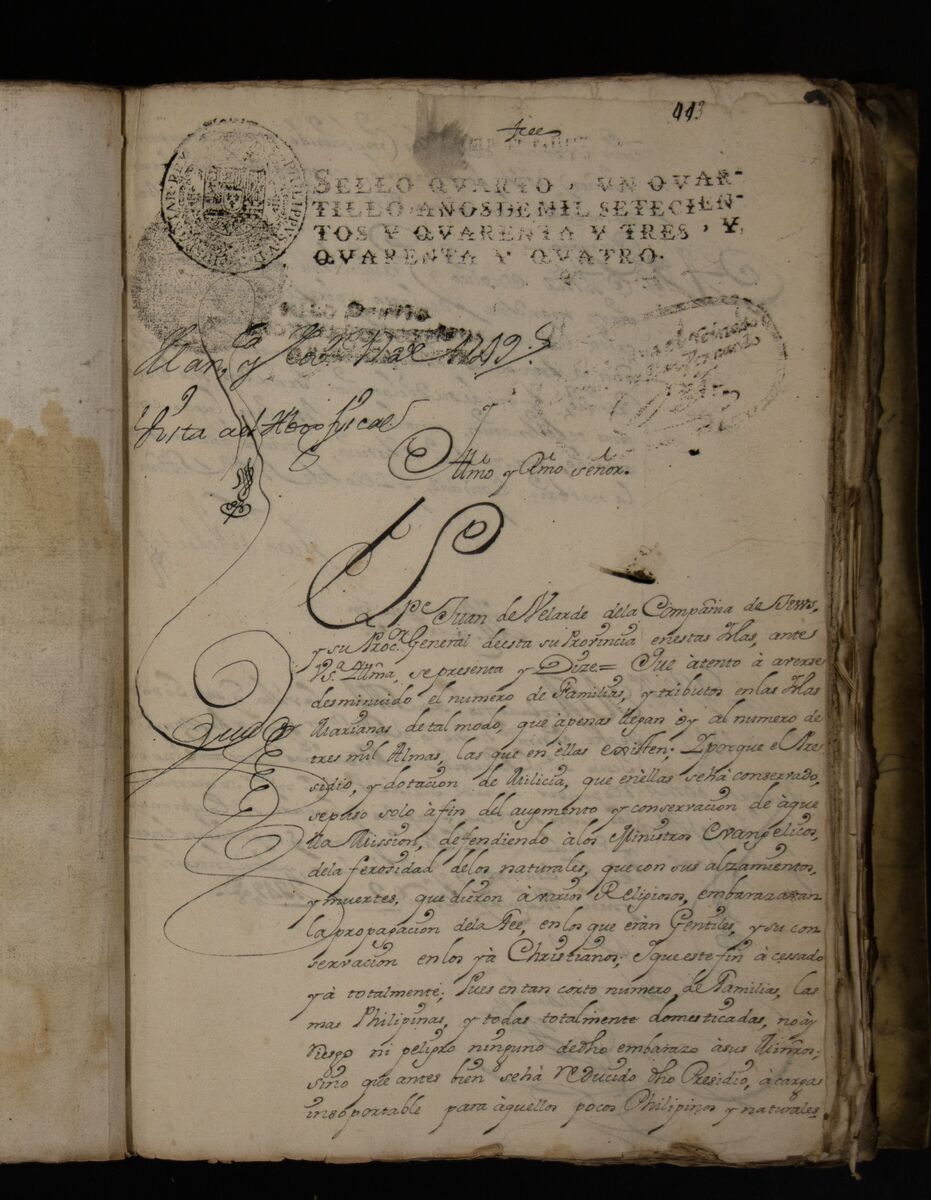 443
SELLO QVARTO, VN QVAR-
TILLO, AÑOS DE MIL SETECIEN-
TOS Y QVARENTA Y TRES, Y
QVARENTA Y QVATRO.
Man.ª y
de 1749
Vista al S.or fiscal
Illmo y Rmo señor.
El P.e Juan de Velarde dela Compañia de Jesus,
y su Proc.or General de esta su Provincia en estas Islas, ante
V.S.ª Illma, se presenta y Dize= Que àtento à averse
desminuido el numero de Familias, y tributos en las Islas
Marianas de tal modo, que àpenas llegan oy al numero de
tres mil Almas, las que en èllas existen; Y porque el Pre
sidio, y dotacion de Milicia, que en èllas se hà conservado,
se puso solo à fin del augmento y conservacion de àque
lla Mission, defendiendo àlos Ministros Evangelicos,
dela ferosidad delos naturales, que con sus alzamientos,
y muertes, que dieron à varios Religiosos, embarazavan
la propagacion dela Fee, en los que eràn Gentiles, y su con
servacion en los yà Christianos; Y que este fin à cessado
yà totalmente; Pues en tan corto numero de Familias, las
mas Philipinas, y todas totalmente domesticadas, no ày
riesgo ni peligro ninguno de dho embarazo àsus Minros;
sino que antes bien se hà reducido dho Presidio, à carga
insoportable para àquellos pocos Philipinos y naturales